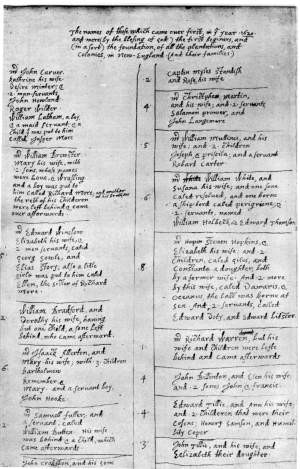 The names of those which came over first, in ye year 1620
and were (by the blesing of God) the first beginers, and
(in a sort) the foundation, of all the plantations, and
Colonies, in New-England (and their families)
mr John Carver.
Kathrine his wife.
Desire minter; &
2. man-servants
John Howland
Roger Wilder
William Latham, a boy,
& a maid servant, & a
child yt was put to him
called Jasper More
mr William Brewster
Mary his wife, with
2. sons, whose names
were Love, & Wrasling
and a boy was put to
him called Richard More; and another
the rest of his children
were left behind & came
over afterwards
mr Edward Winslow
Elizabeth his wife, &
2. men servants, caled
Georg Sowle, and
Elias Story; also a litle
girle was put to him caled
Ellen, the sister of Richard
More.
William Bradford, and
Dorothy his wife, having
but one child, a sone left
behind, who came afterward.
mr Isaack Allerton, and
Mary his wife, with 3. children
Bartholmew
Remember, &
Mary. and a servant boy,
John Hooke.
mr Samuell fuller; and
a servant, caled
William Butten. His wife
was behind & a child, which
came afterwards
John crakston, and his sone
2
Captin Myles Standish
and Rose, his wife
4
mr Christopher Martin,
and his wife; and 2. servants,
Salamon prower, and
John Langemore
5
mr William Mullines, and his
wife; and 2. children
Joseph & priscila; and a servant
Robart Carter
6
mr William White, and
Susana his wife; and one sone
caled resolved, and one borne
a ship-bord caled perigriene; &
2. servants, named
William Holbeck, & Edward Thomson
8
mr Steven Hopkins, &
Elizabeth his wife; and 2.
children, caled Giles, and
Constanta a doughter, both
by a former wife. And 2. more
by this wife, caled Damaris, &
Oceanus, the last was borne at
sea. And 2. servants, called
Edward Doty, and Edward Litster
1
mr Richard Warren, but his
wife and children were lefte
behind and came afterwards
4
John Billinton, and Elen his wife,
and 2. sones John & francis.
4
Edward Tillie, and Ann his wife,
and 2. children that were their
cossens; Henery Samson, and Humil-
lity Coper
3
John Tillie, and his wife, and
Eelizabeth their doughter